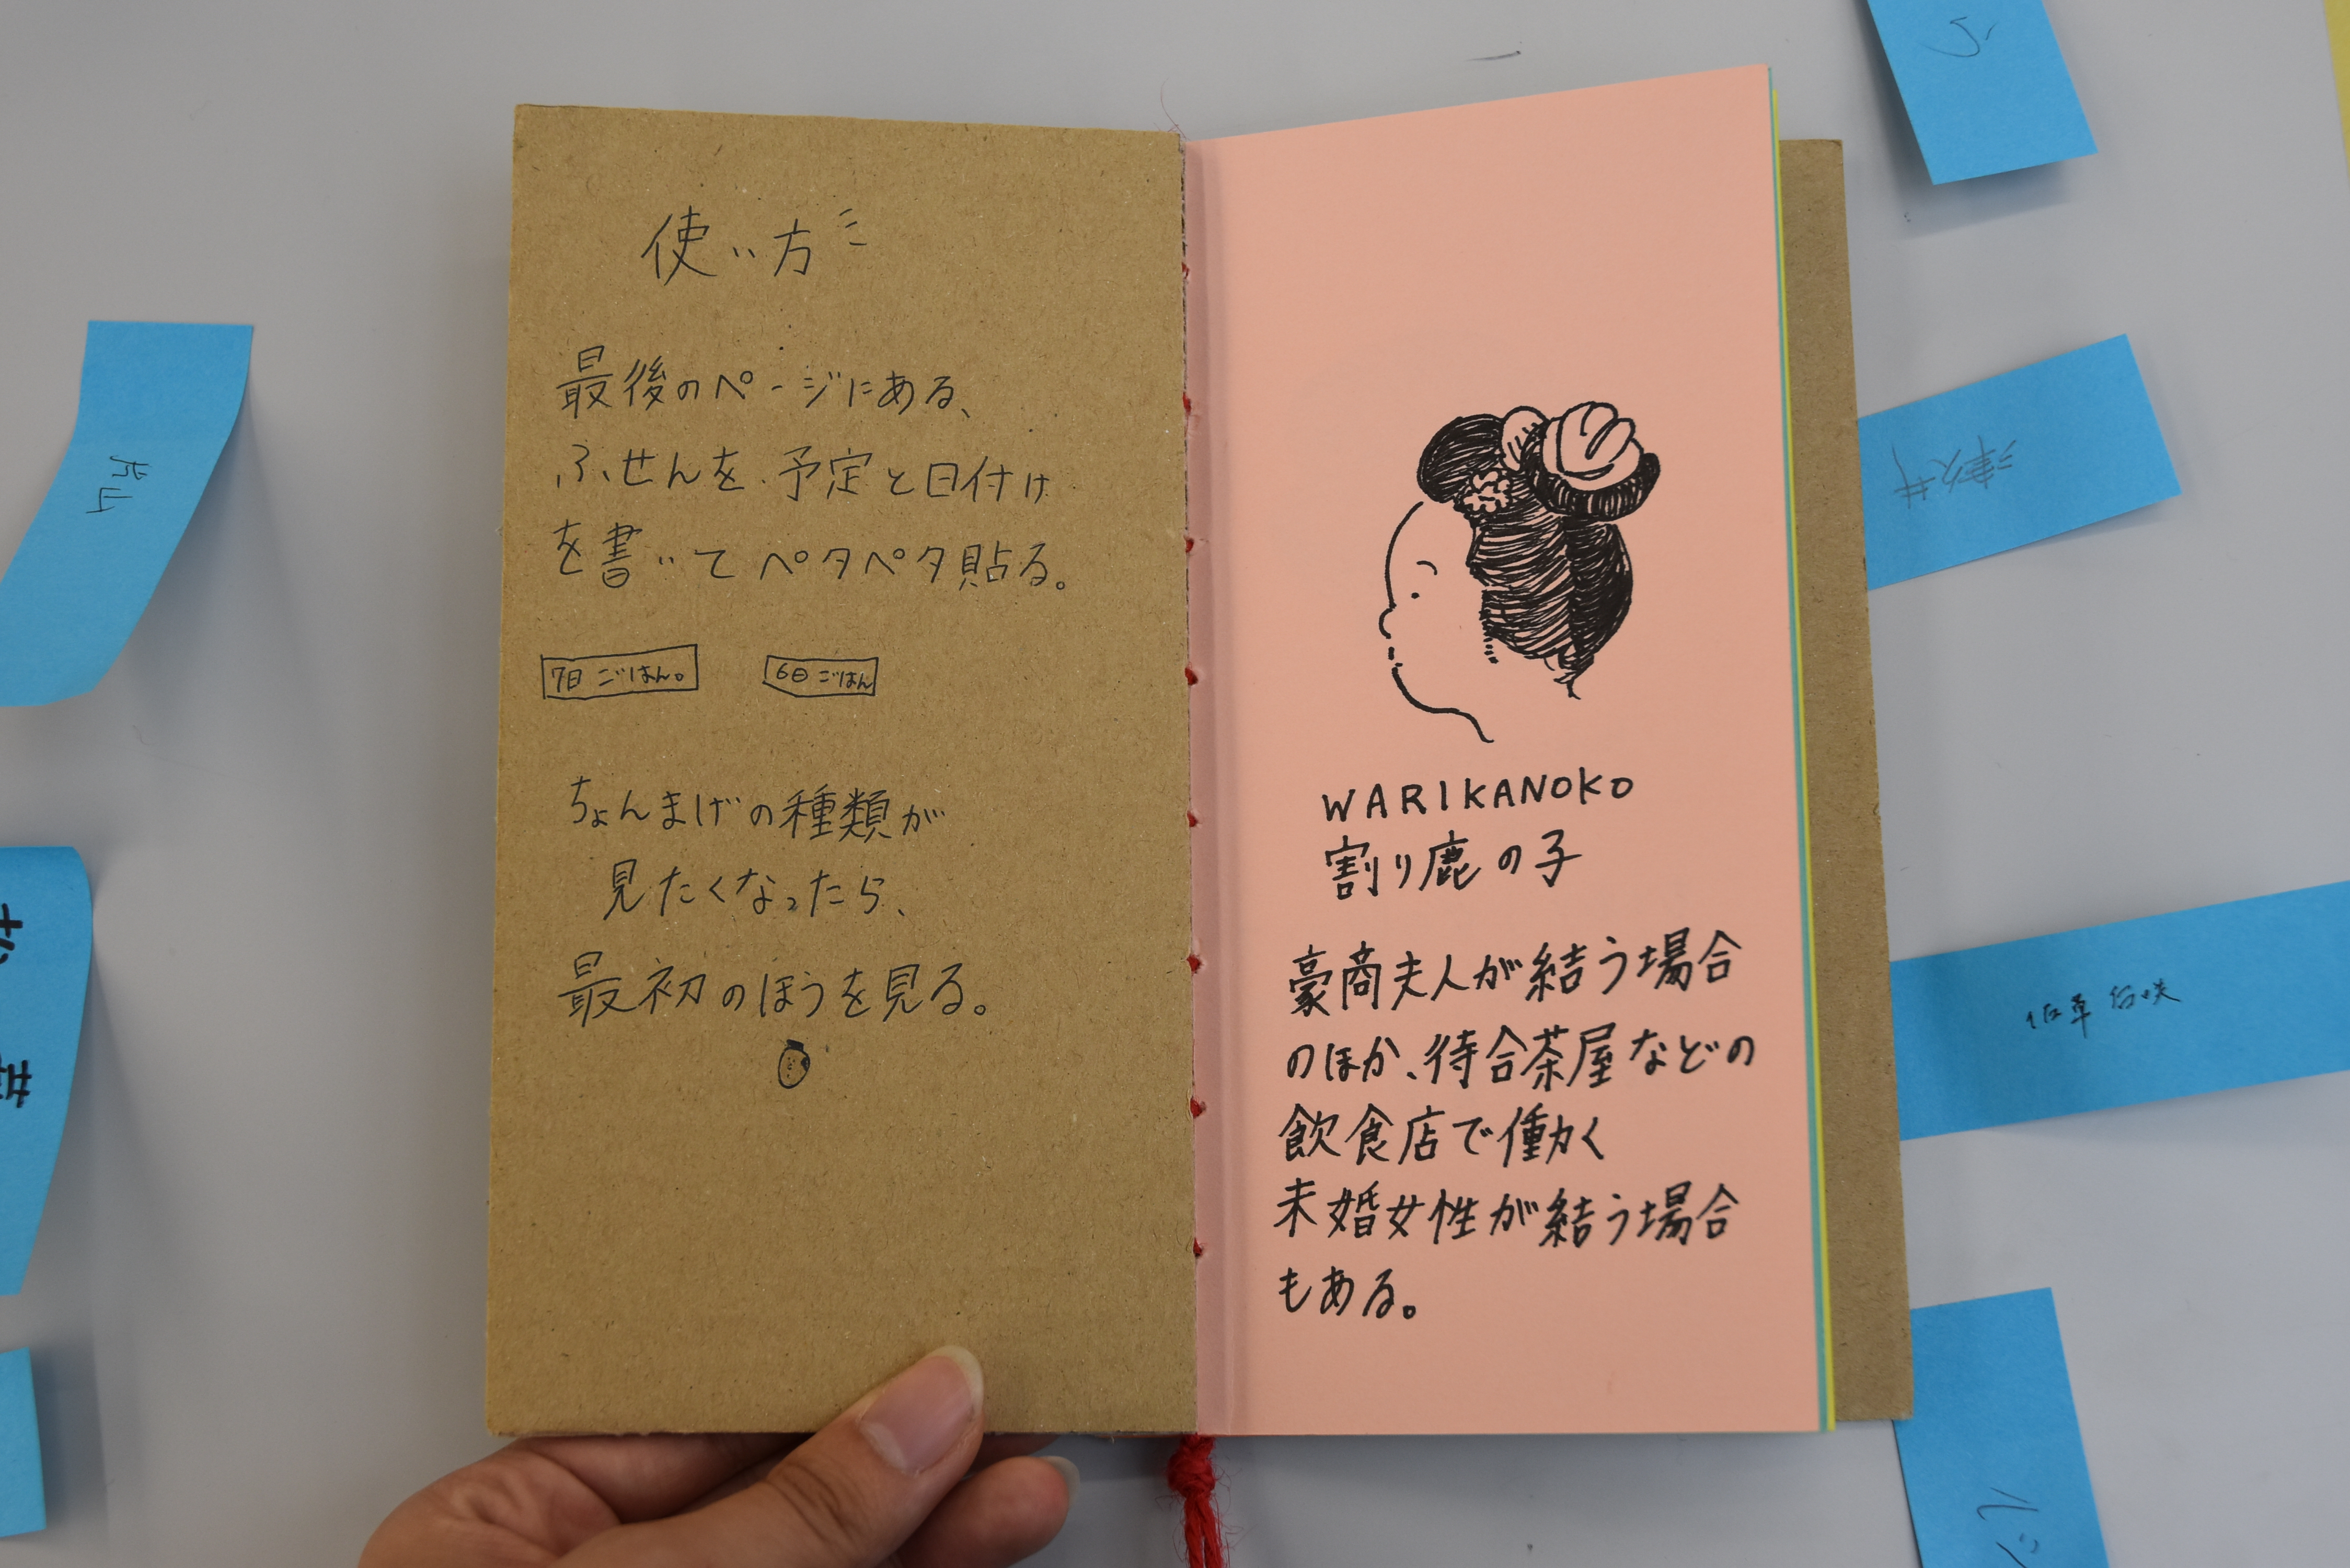 使い方
最後のページにある、
ふせんを、予定と日付け
を書いてペタペタ貼る。
7日 ごはん。
6日 ごはん
ちょんまげの種類が
見たくなったら、
最初のほうを見る。
WARIKANOKO
割り鹿の子
豪商夫人が結う場合
のほか、待合茶屋などの
飲食店で働く
未婚女性が結う場合
もある。
津久井